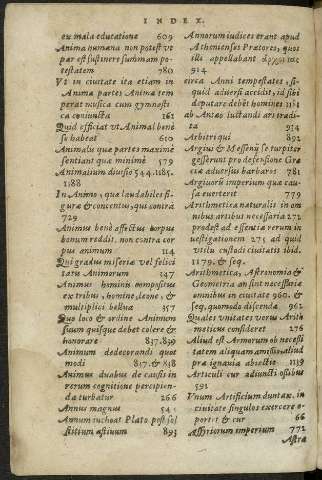 INDEX.
ex mala educatione 609
Anima humana non potest vt
par est sustinere summam po-
testatem 780
Vt in ciuitate ita etiam in
Anima partes Anima tem
perat musica cum gymnasti
ca coniuncta 161
Quid efficiat vt Animal bene
se habeat 600
Animalis quæ partes maxime
sentiant quæ minimè 579
Animalium diuisio 544. 1185.
1188
In Animo, qua laudabiles fi-
gura & concentus, qui contrà
729
Animus bene affectus corpus
bonum reddit, non contra cor
pus animum 114
Qui gradus miseriæ vel felici
tatis Animorum 147
Animus hominis compositus
ex tribus, homine, leone, &
multiplici bellua 357
Quo loco & ordine Animum
suum quisque debet colere &
honorare 837.839
Animum dedecorandi quot
modi 837. & 838
Animus duabus de causis in
rerum cognitione percipien-
da turbatur 266
Annus magnus
Annum inchoat Plato post sol
stitium æstiuum 893
Annorum iudices erant apud
Athenienses Prætores, quos
illi appellabant
914
circa Anni tempestates, si-
quid aduersi accidit, id sibi
deputare debet homines 1181
ab Antæo luctandi ars tradi-
ta 914
Arbitri qui 892
Argiui & Messenij se turpiter
gesserunt pro defensione Græ
ciæ aduersus barbaros 781
Argiuoris imperium qua cau-
sa euerterit 779
Arithmetica naturalis in om
nibus artibus necessaria 272
prodest ad essentiæ rerum in
uestigationem 271 ad quid
vtilis custodi ciuitatis ibid.
1179. & seq.
Arithmetica, Astronomia &
Geometria an sint necessariæ
omnibus in ciuitate 960. &
seq. quomodo discendæ 962
Quales vnitates verus Arith
meticus consideret 276
Aliud est Armorum ob necessi
tatem aliquam amissio, aliud
præ ignauia abiectio 1139
Articuli cur adiuncti ossibus
592
Vnum Artificium duntax. in
ciuitate singulos exercere o-
portet & cur 66
Assyriorum imperium 772
Astra